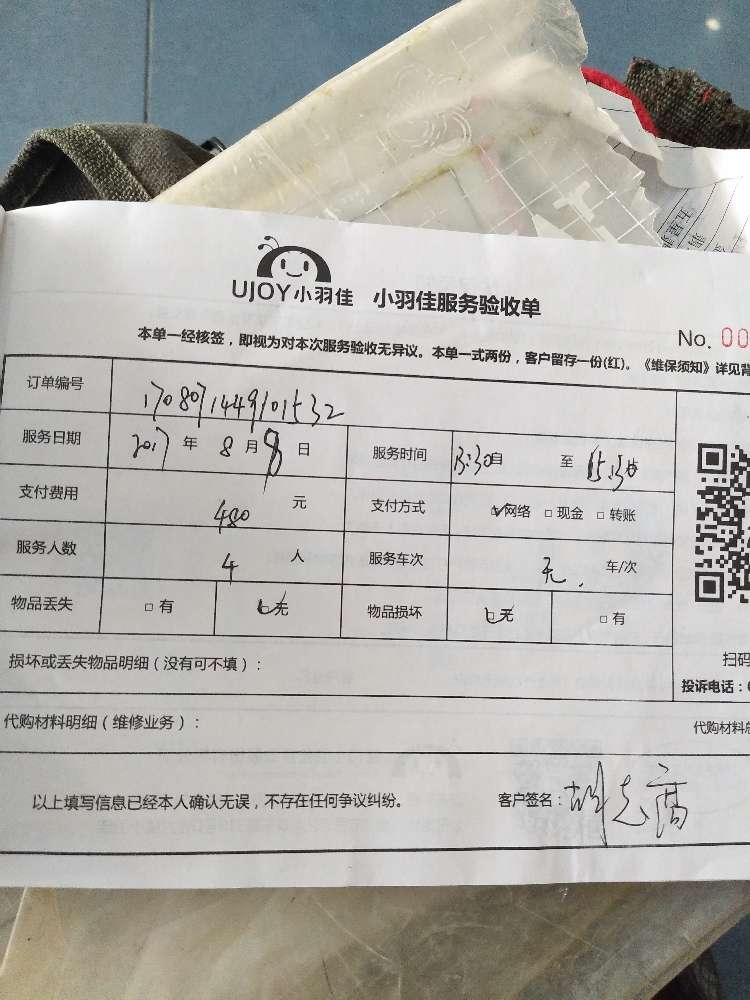 UJOY小羽佳 小羽佳服务验收单
No. 00
本单一经核签，即视为对本次服务验收无异议。本单一式两份，客户留存一份(红)。《维保须知》详见背
订单编号 1708071449101532
服务日期 2017 年 8 月 8 日 服务时间 13:30自 至 15:30
支付费用 480 元 支付方式 ☑网络 □现金 □转账
服务人数 4 人 服务车次 无. 车/次
物品丢失 □有 ☑无 物品损坏 ☑无 □有
扫码
损坏或丢失物品明细（没有可不填）：
投诉电话：
代购材料明细（维修业务）： 代购材料
以上填写信息已经本人确认无误，不存在任何争议纠纷。 客户签名：胡志